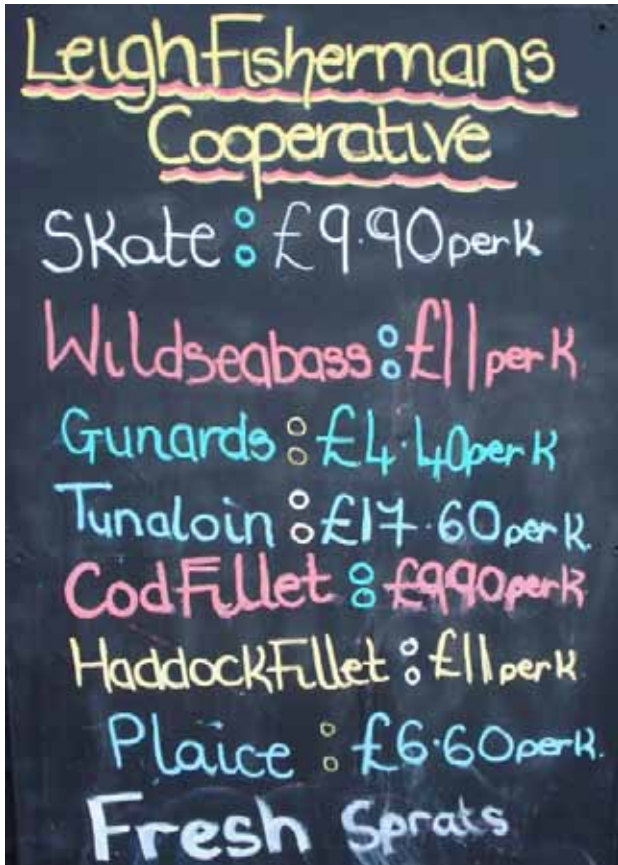 Leigh Fishermans
Cooperative
Skate: £9.90 per K
Wildseabass: £11 per K
Gunards: £4.40 per K
Tunaloin: £17.60 per K.
Cod Fillet: £990 per K
Haddock Fillet: £11 per K
Plaice: £6.60 per K.
Fresh Sprats